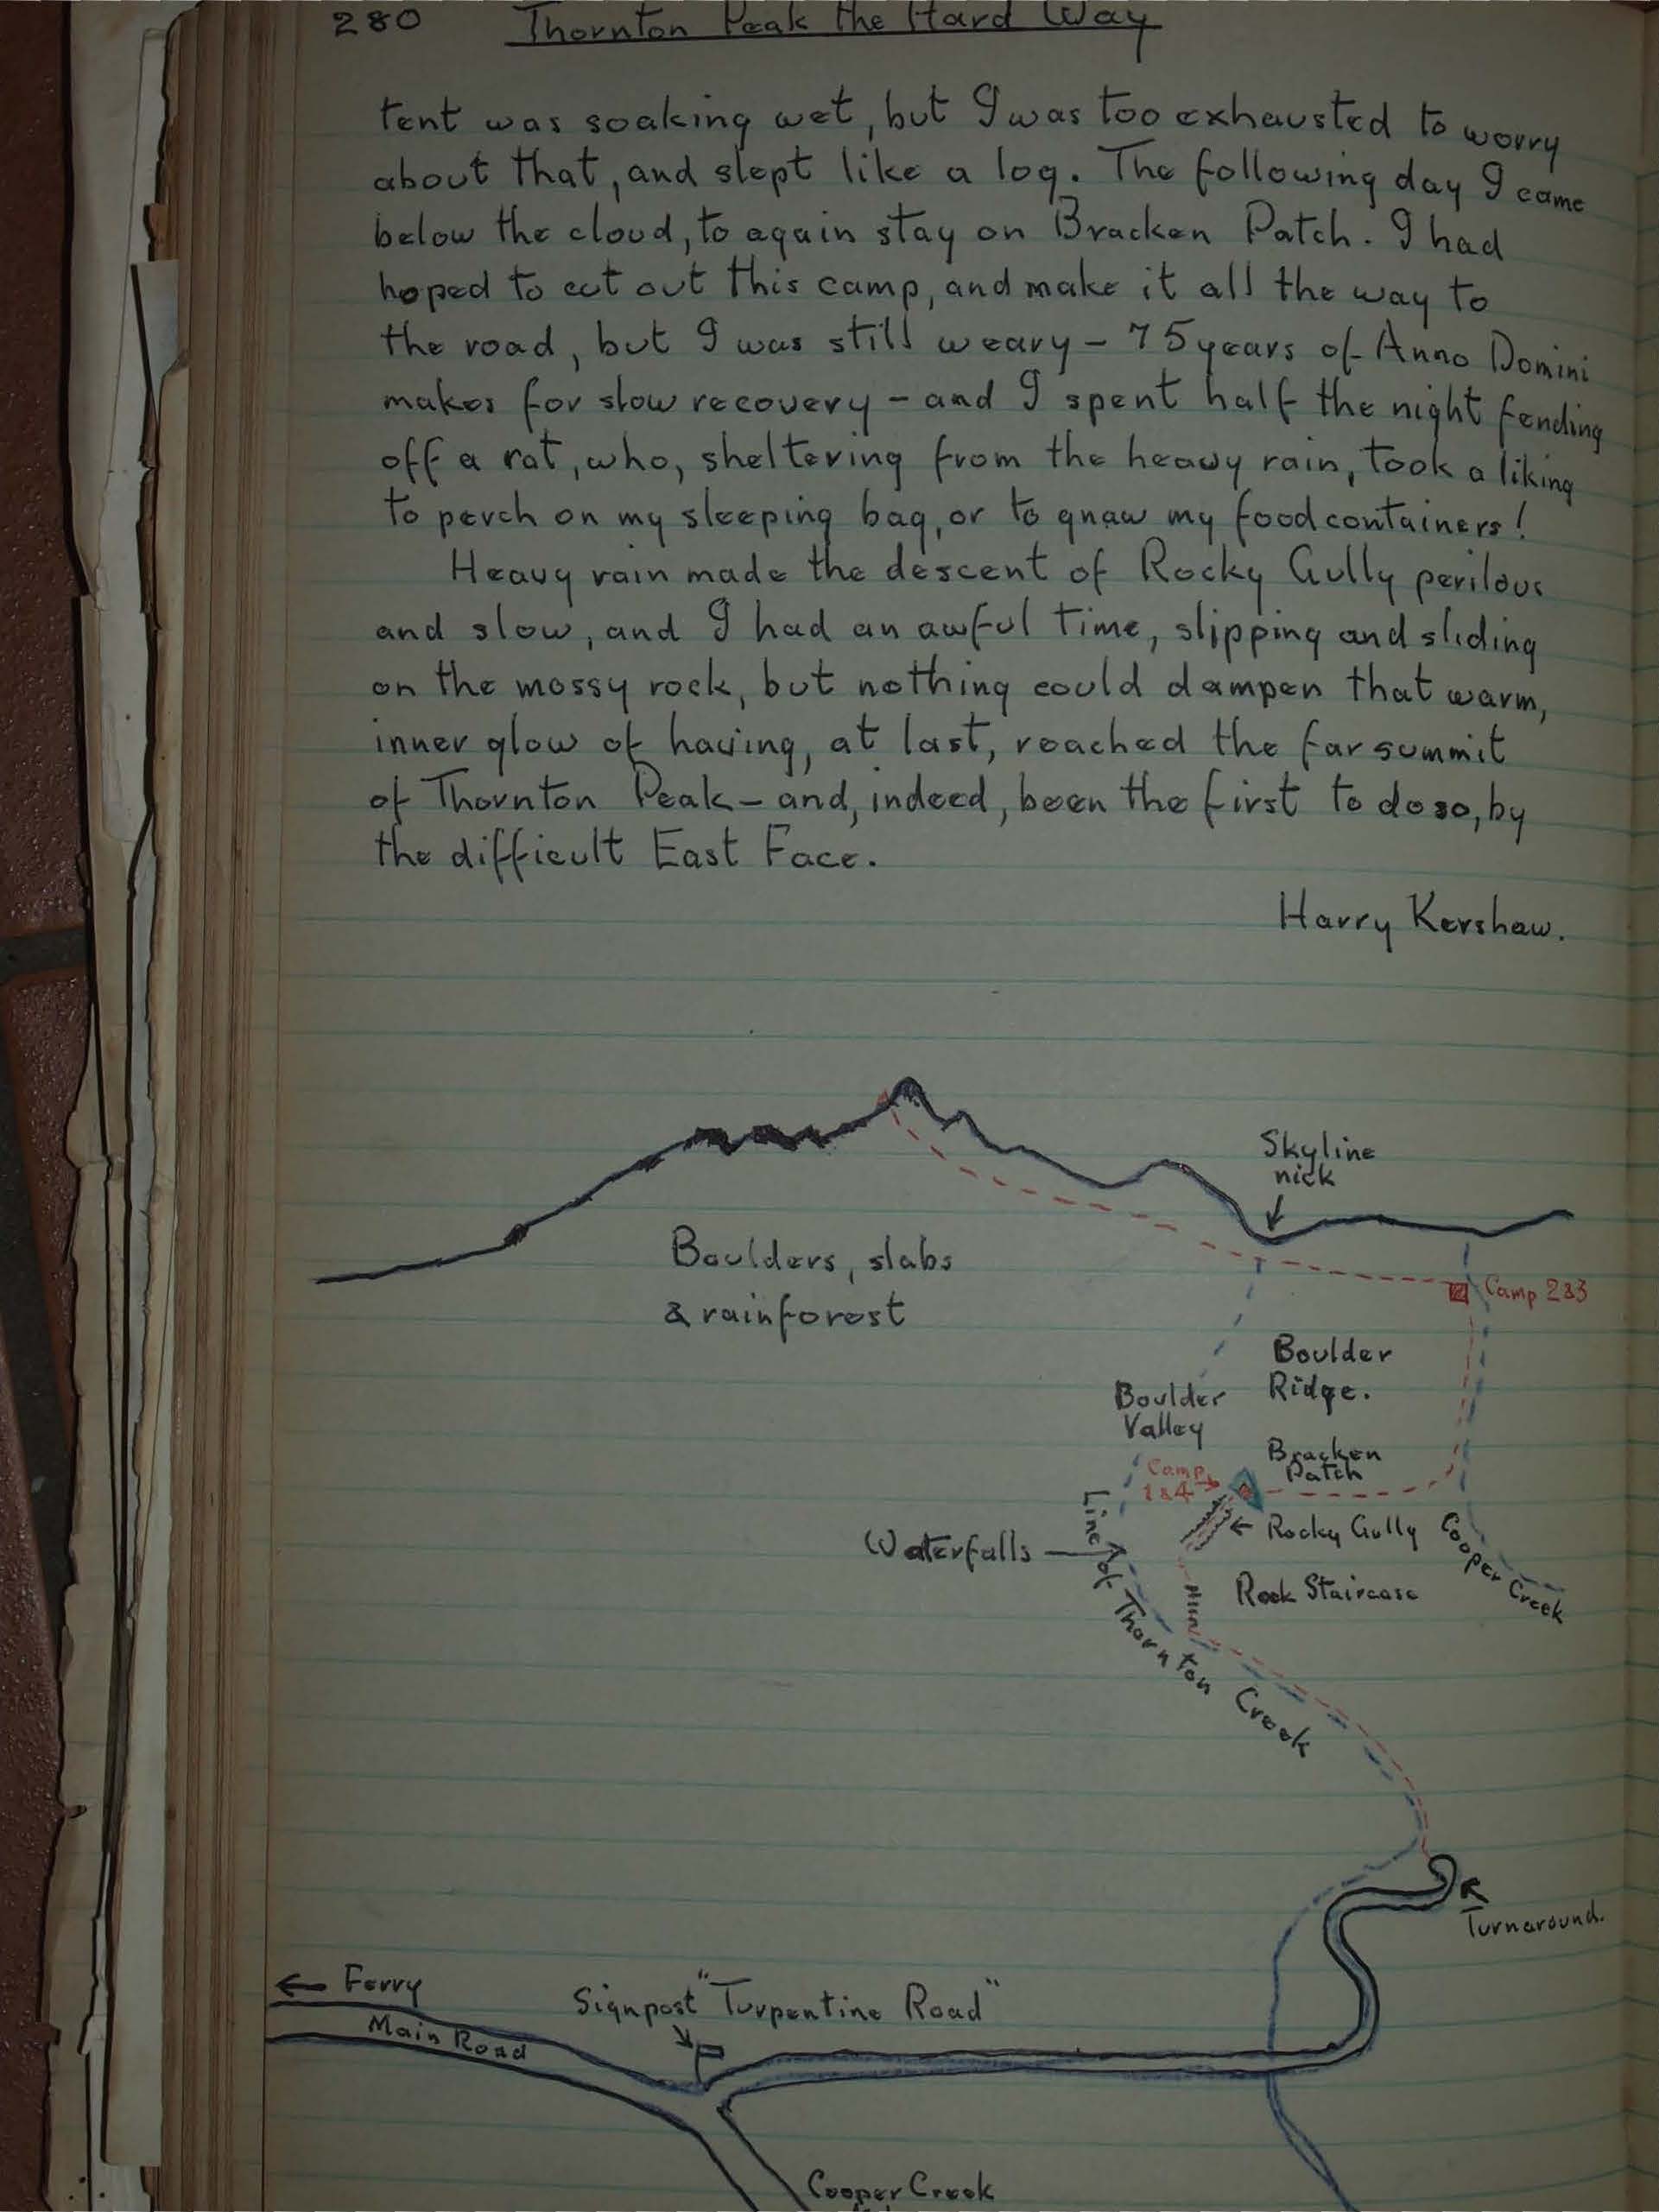 280 Thornton Peak the Hard Way
tent was soaking wet, but I was too exhausted to worry
about that, and slept like a log. The following day I came
below the cloud, to again stay on Bracken Patch. I had
hoped to cut out this camp, and make it all the way to
the road, but I was still weary – 75 years of Anno Domini
makes for slow recovery – and I spent half the night fending
off a rat, who, sheltering from the heavy rain, took a liking
to perch on my sleeping bag, or to gnaw my food containers!
Heavy rain made the descent of Rocky Gully perilous
and slow, and I had an awful time, slipping and sliding
on the mossy rock, but nothing could dampen that warm,
inner glow of having, at last, reached the far summit
of Thornton Peak – and, indeed, been the first to do so, by
the difficult East Face.
Harry Kershaw.
Skyline
nick
Boulders, slabs
& rainforest
Camp 2&3
Boulder
Ridge.
Boulder
Valley
Bracken
Patch
Camp
1&4
Rocky Gully
Waterfalls
Rock Staircase
Cooper Creek
Line of Thornton Creek
Turnaround.
← Ferry
Signpost "Turpentine Road"
Main Road
Cooper Creek